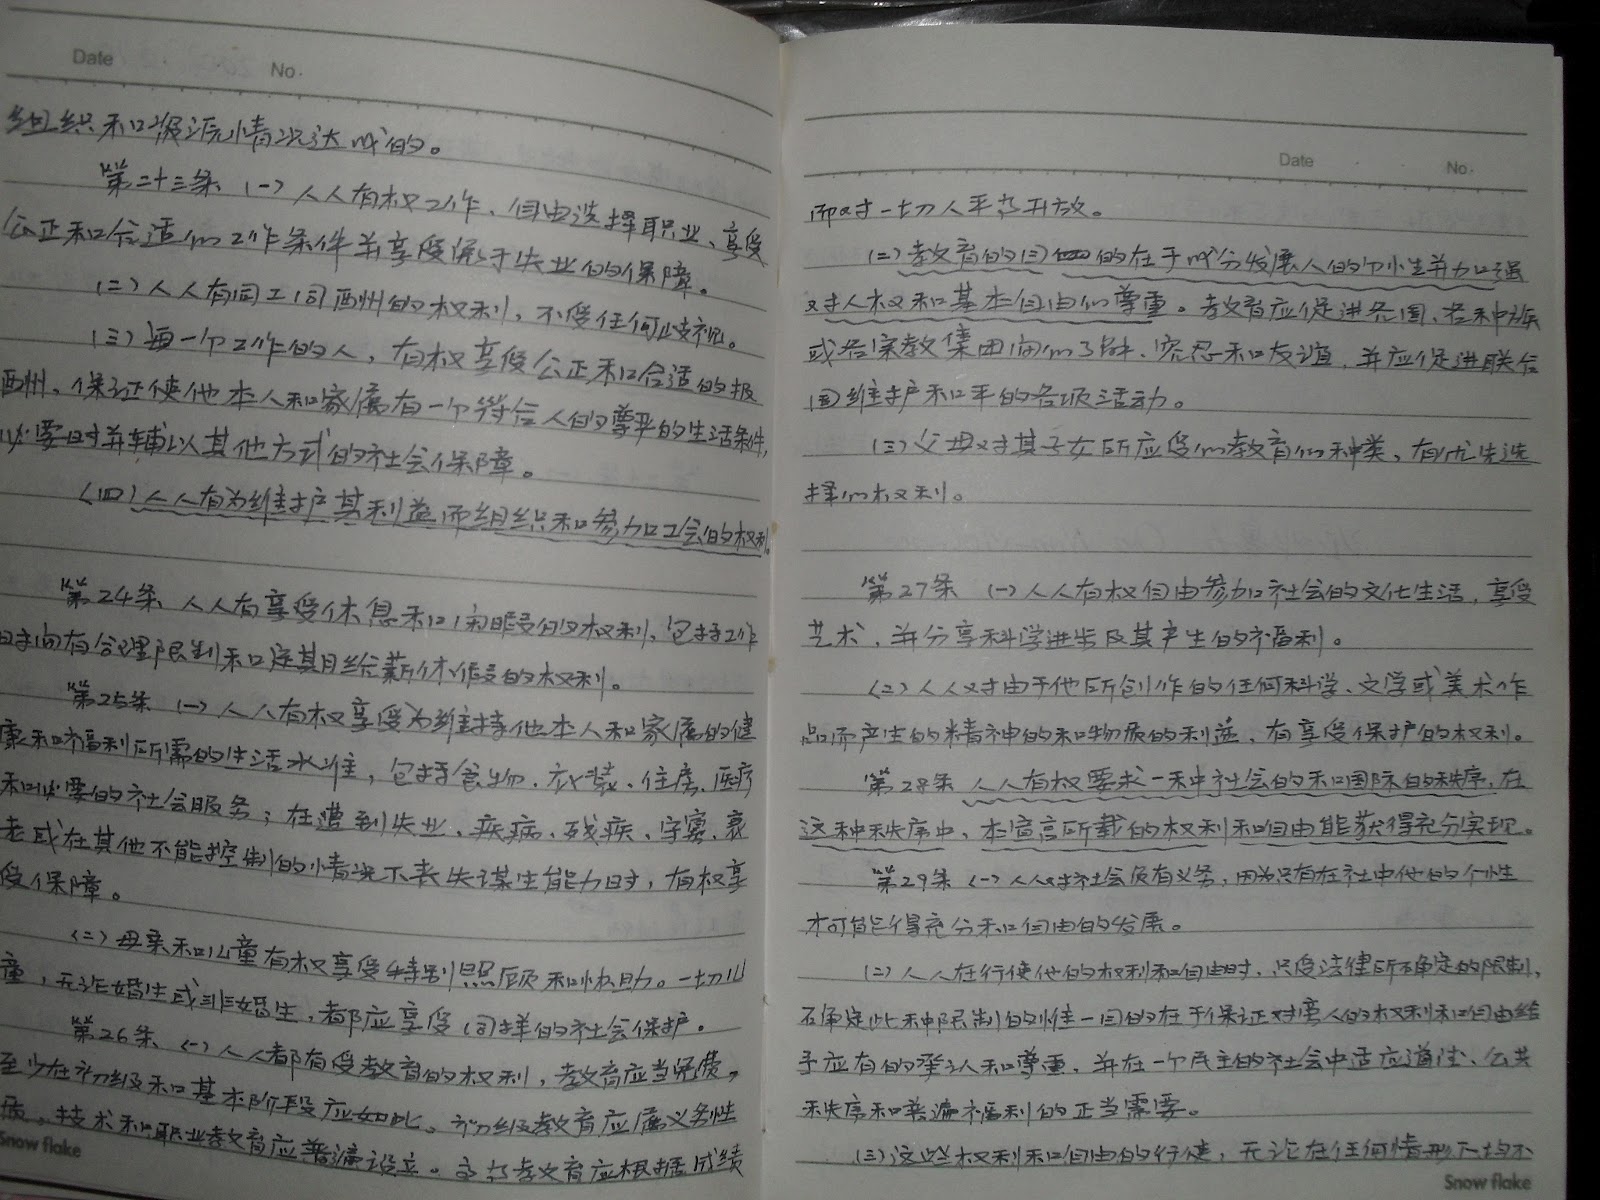 Date
No.
组织和资源情况达成的。
第二十三条 (一)人人有权工作、自由选择职业、享受
公正和合适的工作条件并享受免于失业的保障。
(二)人人有同工同酬的权利,不受任何歧视。
(三)每一个工作的人,有权享受公正和合适的报
酬,保证使他本人和家属有一个符合人的尊严的生活条件,
必要时并辅以其他方式的社会保障。
(四)人人有为维护其利益而组织和参加工会的权利。
第24条 人人有享受休息和闲暇的权利,包括工作
时间有合理限制和定期给薪休假的权利。
第25条 (一)人人有权享受为维持他本人和家属的健
康和福利所需的生活水准,包括食物、衣装、住房、医疗
和必要的社会服务;在遭到失业、疾病、残疾、守寡、衰
老或在其他不能控制的情况下丧失谋生能力时,有权享
受保障。
(二)母亲和儿童有权享受特别照顾和协助。一切儿
童,无论婚生或非婚生,都应享受同样的社会保护。
第26条 (一)人人都有受教育的权利,教育应当免费,
至少在初级和基本阶段应如此。初级教育应属义务性
质。技术和职业教育应普遍设立。高等教育应根据成绩
Snow flake
Date
No.
而对一切人平等开放。
(二)教育的目的在于成分发展人的个性并加强
对人权和基本自由的尊重。教育应促进各国、各种族
或各宗教集团间的了解、宽忍和友谊,并应促进联合
国维护和平的各项活动。
(三)父母对其子女所应受的教育的种类,有优先选
择的权利。
第27条 (一)人人有权自由参加社会的文化生活,享受
艺术,并分享科学进步及其产生的福利。
(二)人人对由于他所创作的任何科学、文学或美术作
品而产生的精神的和物质的利益,有享受保护的权利。
第28条 人人有权要求一种社会的和国际的秩序,在
这种秩序中,本宣言所载的权利和自由能获得充分实现。
第29条 (一)人人对社会负有义务,因为只有在社中他的个性
才可能得充分和自由的发展。
(二)人人在行使他的权利和自由时,只受法律所确定的限制,
确定此种限制的惟一目的在于保证对旁人的权利和自由给
予应有的承认和尊重,并在一个民主的社会中适应道德、公共
秩序和普遍福利的正当需要。
(三)这些权利和自由的行使,无论在任何情形下均不
Snow flake